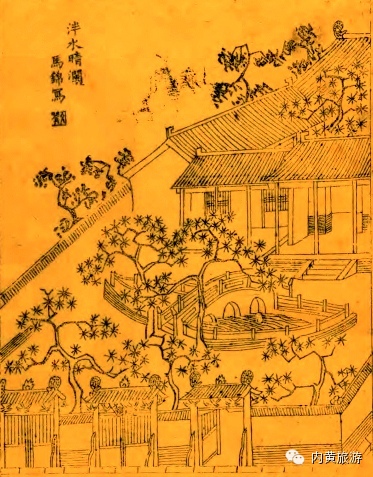 泮水晴瀾
馬錦寫
内黄旅游